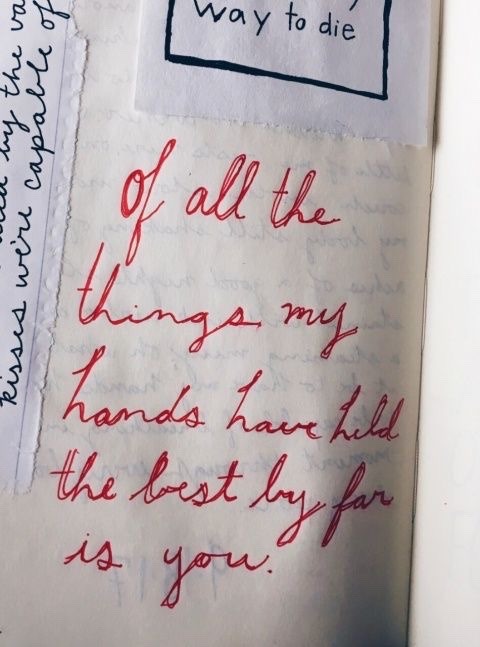 way to die
of all the
things my
hands have held
the best by far
is you.
by the va
kisses we're capable of